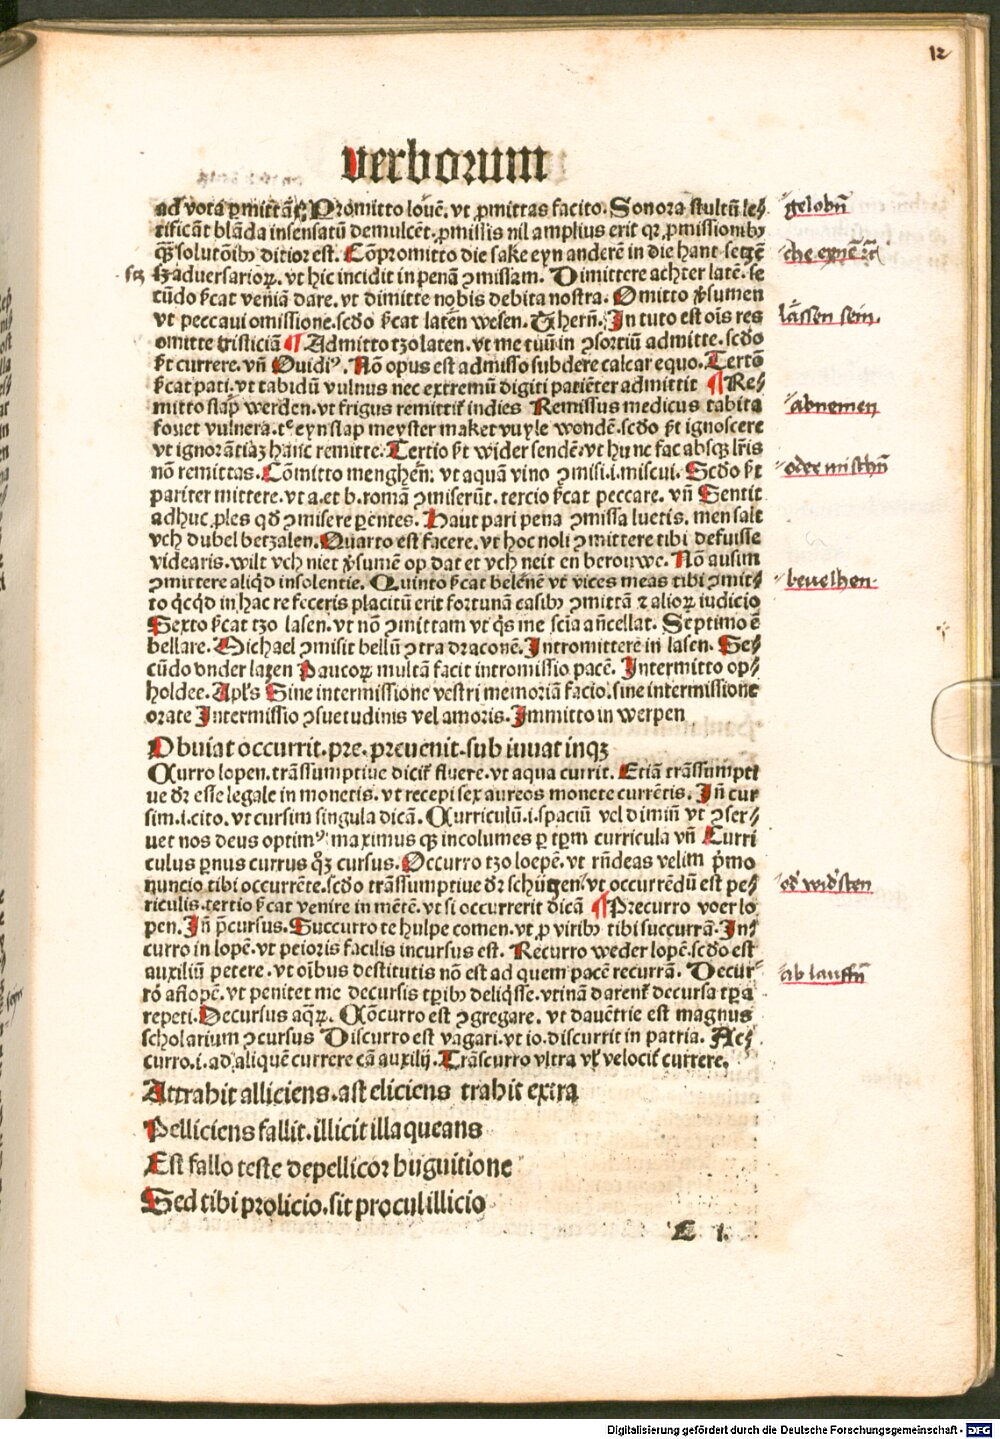 12
verborum
ad vota ꝑmittãt. Promitto louẽ. vt ꝓmittas facito. Sonora stultũ le⸗
tificãt blãda insensatũ demulcẽt. ꝓmissis nil amplius erit qꝫ ꝓmissionibꝰ
qꝫ solutõibꝰ ditior est. Cõpromitto die sake eyn anderẽ in die hant setgẽ
adversarioꝝ. vt hic incidit in penã ꝯmissam. Dimittere achter latẽ. se
cũdo sͥcat veniã dare. vt dimitte nobis debita nostra. Omitto
vt peccaui omissione. scd̃o sͥcat latẽn wesen. In tuto est oĩs res
omitte tristiciã ¶ Admitto tzolaten. vt me tuũ in ꝯsortiũ admitte. scd̃o
sͥt currere. vñ Ouidiꝰ. Nõ opus est admisso subdere calcar equo. Tertõ
sͥcat pati. vt tabidũ vulnus nec extremũ digiti patiẽter admittit ¶ Re⸗
mitto slap werden. vt frigus remittit indies Remissus medicus tabita
fouet vulnera. eyn slap meyster maket vuyle wondẽ. scd̃o sͥt ignoscere
vt ignorãtiaꝫ hanc remitte. Tertio sͥt wider sendẽ. vt hunc fac absqꝫ lr̃is
nõ remittas. Cõmitto menghẽn. vt aquã vino ꝯmisi .i. miscui. Scd̃o sͥt
pariter mittere. vt a. et b. romã ꝯmiserũt. tercio sͥcat peccare. vñ Sentit
adhuc ꝓles qd̃ ꝯmisere ꝑentes. Haut pari pena ꝯmissa luetis. men salt
vch dubel betzalen. Quarto est facere. vt hoc noli ꝯmittere tibi defuisse
videaris. wilt vch niet ꝓsumẽ op dat et vch neit en berouwe. Nõ ausim
ꝯmittere aliqd̃ insolentie. Quinto sͥcat belẽnẽ vt vices meas tibi ꝯmit⸗
to in hac re feceris placitũ erit fortunã casibꝰ ꝯmittã ⁊ alioꝝ iudicio
Sexto sͥcat tzo lasen. vt nõ ꝯmittam vt q̃s me scĩa añcellat. Septimo ẽ
bellare. Michael ꝯmisit bellũ ꝯtra draconẽ. Intromittere in lasen. Se⸗
cũdo vnder lazen Paucoꝝ multã facit intromissio pacẽ. Intermitto op⸗
holdee. Apl's Sine intermissione vestri memoriã facio. sine intermissione
orate Intermissio ꝯsuetudinis vel amoris. Immitto in werpen
Obuiat occurrit. pre. preuenit. sub iuuat inqꝫ
Curro lopen. trãssumptiue dicit̃ fluere. vt aqua currit. Etiã trãssumpti
ue dr̃ esse legale in monetis. vt recepi sex aureos monete currẽtis. Iñ cur
sim .i. cito. vt cursim singula dicã. Curriculũ .i. spaciũ vel dimiñ vt ꝯser⸗
uet nos deus optimꝰ maximus qꝫ incolumes ꝑ tꝑm curricula vñ Curri
culus ꝑnus currus cursus. Occurro tzo loepẽ. vt rñdeas velim p̃mo
nuncio tibi occurrẽte. scd̃o trãssumptiue dr̃ schügen. vt occurrẽdũ est pe⸗
riculis. tertio sͥcat venire in mẽtẽ. vt si occurrerit dicã ¶ Precurro voer lo
pen. Iñ p̃cursus. Succurro te hulpe comen. vt ꝓ viribꝰ tibi succurrã. In⸗
curro in lopẽ. vt peioris facilis incursus est. Recurro weder lopẽ. scd̃o est
auxiliũ petere. vt oĩbus destitutis nõ est ad quem pacẽ recurrã. Decur⸗
ro aflopẽ. vt penitet me decursis tꝑibꝰ deliq̃sse. vtinã darent̃ decursa tꝑa
repeti. Decursus aqꝝ. Cõcurro est ꝯgregare. vt dauẽtrie est magnus
scholarium ꝯcursus Discurro est vagari. vt io. discurrit in patria. Ac⸗
curro .i. ad aliquẽ currere cã auxilij. Trãscurro vltra vͥl velocit̃ currere.
Attrahit alliciens. ast eliciens trahit extra
Pelliciens fallit. illicit illaqueans
Est fallo teste depellicor huguitione
Sed tibi prolicio. sit procul illicio
gelobñ
lãssen sein.
abnemen
oder mischñ
bevelhen.
od' wid'sten
ab lauffñ
Digitalisierung gefördert durch die Deutsche Forschungsgemeinschaft - DFG